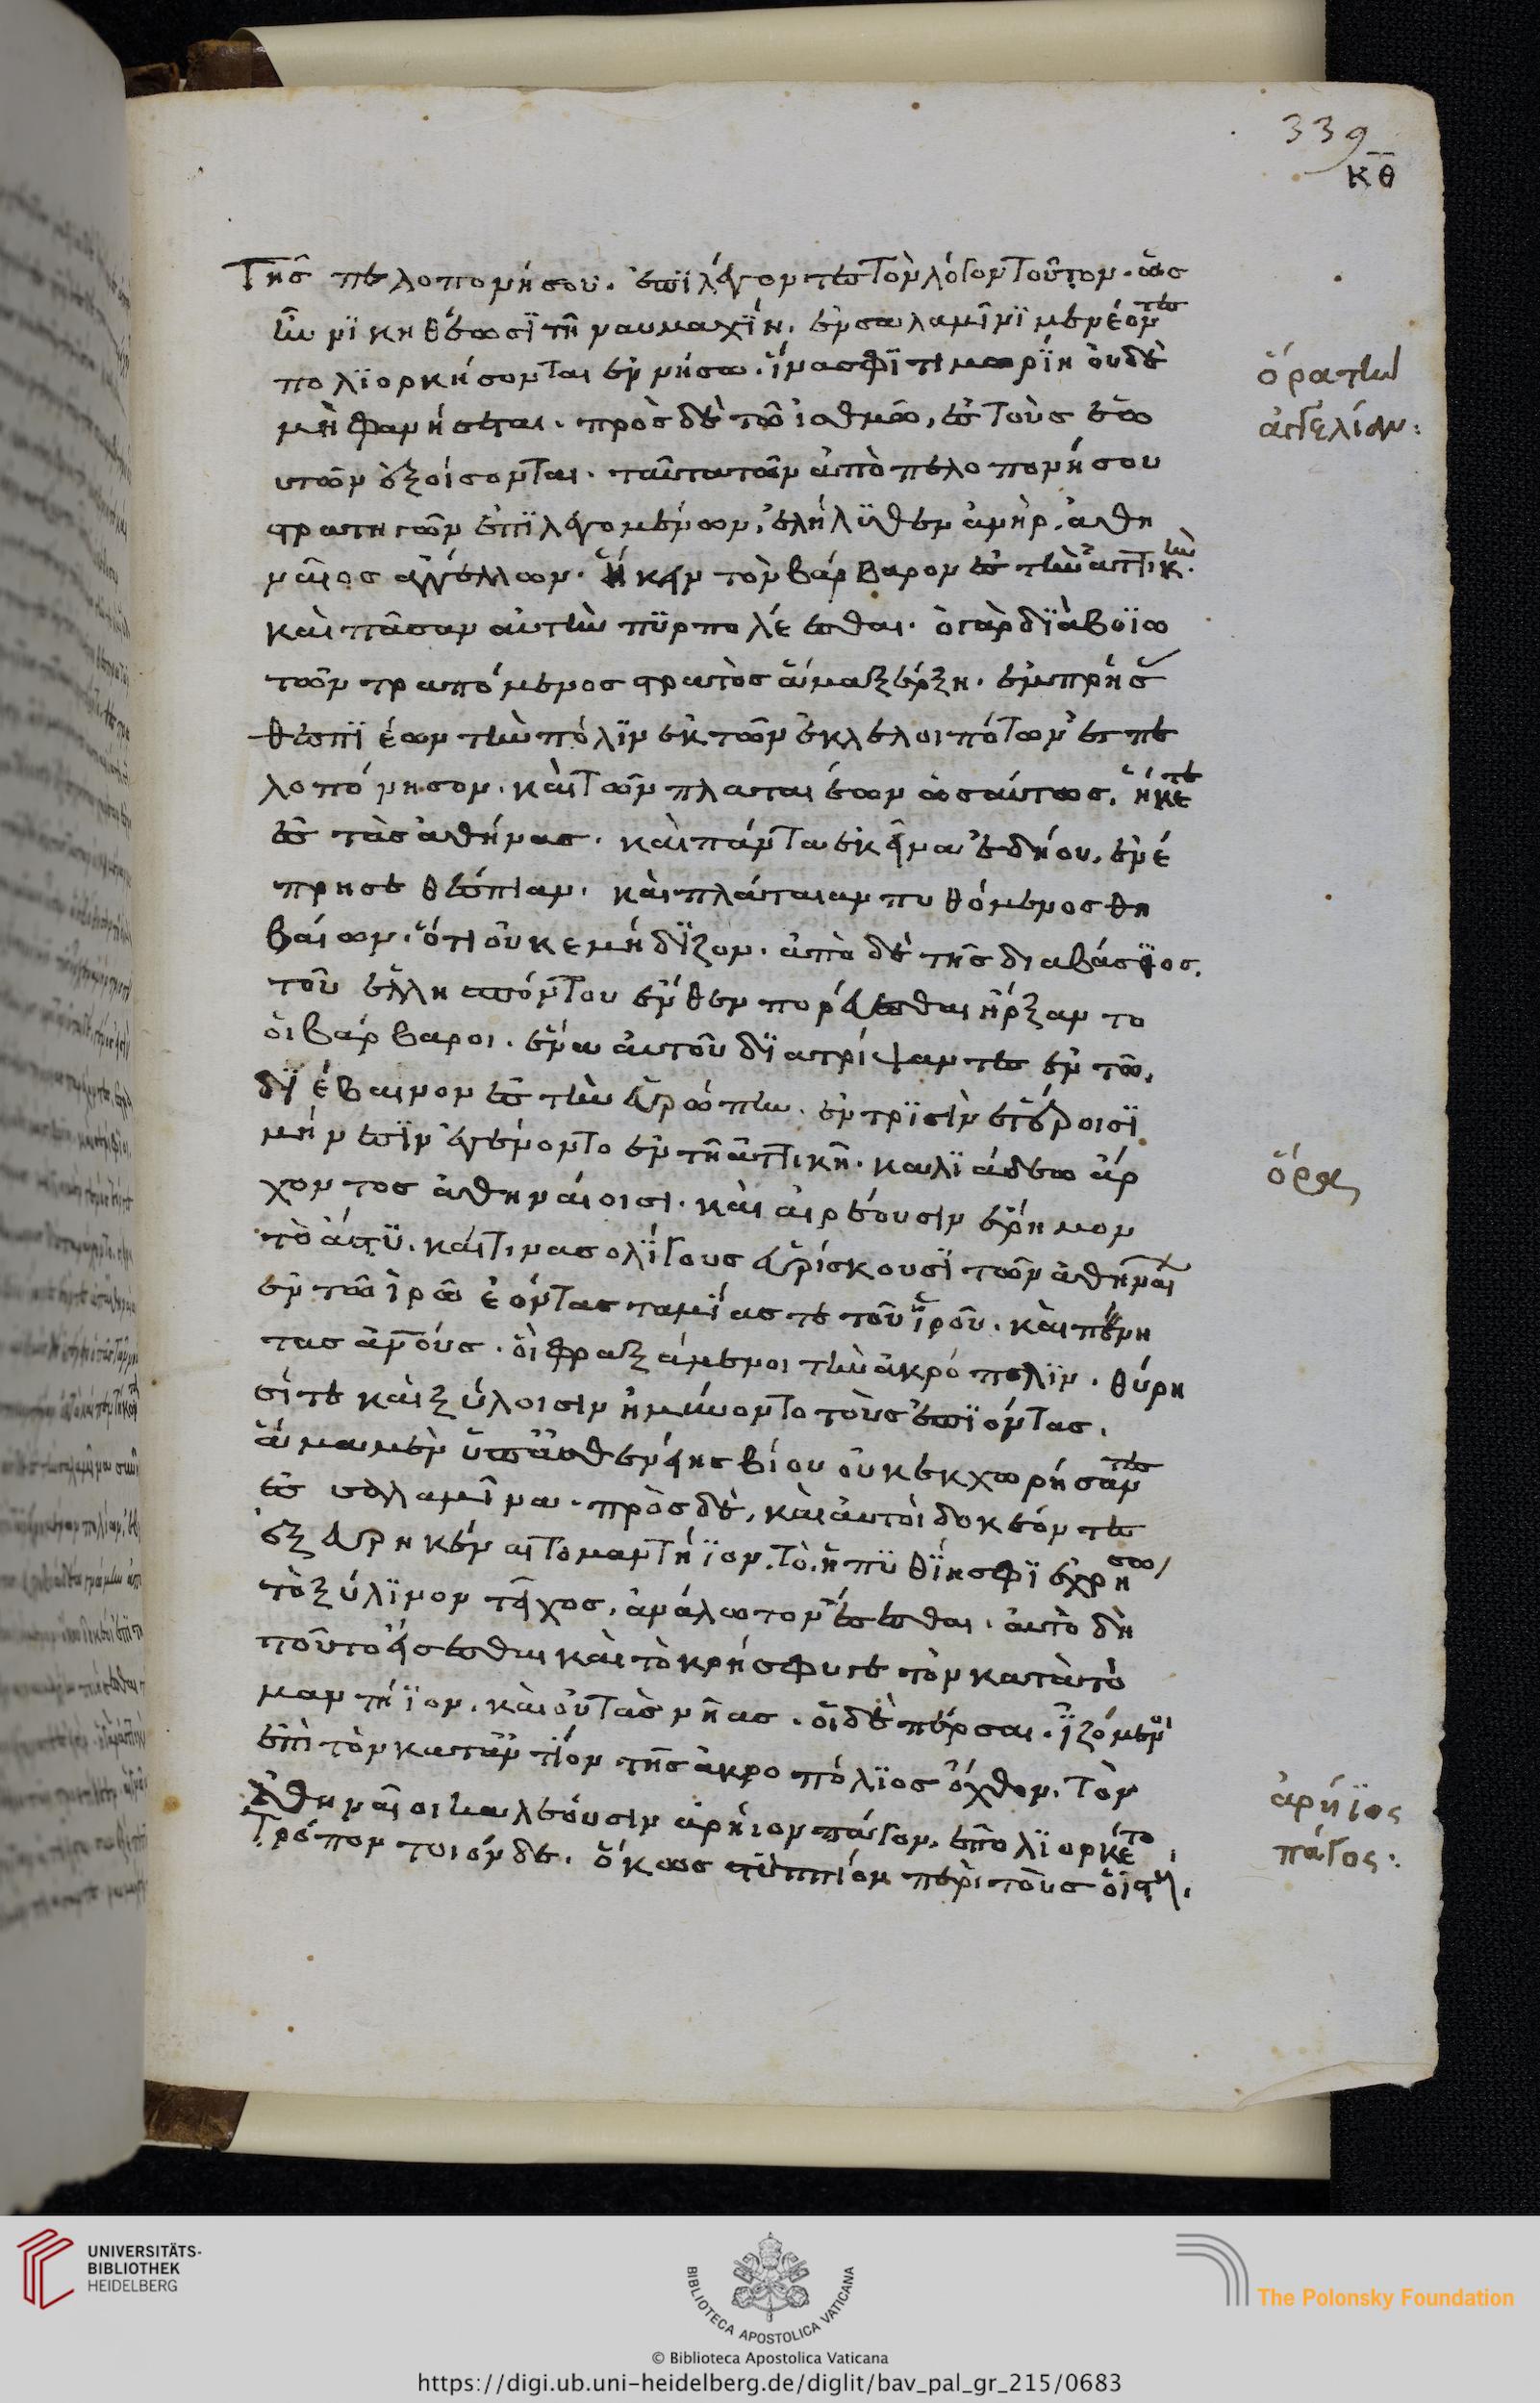 339
κθ
Τῆς πελοπονήσου. ἐπιλέγοντες τὸν λόγον τοῦτον. ὡς
ἢν νικηθέωσϊ τῆ ναυμαχΐη. ἐν σαλαμῖνι μενέοντες
πολϊορκήσονται ἐν νήσω. ἵνα σφϊ τιμωρΐη ὀυδὲ
μὴ φανήσεται. πρὸς δὲ τῶ ἰσθμῶ, ἐς τοὺς ἑω
υτῶν ἐξοίσονται. ταῦτα τῶν ἀπὸ πελοπονήσου
στρατηγῶν ἐπϊλεγομένων, ἐλήλϋθεν ἀνὴρ, ἀθη
ναῖος ἀγγέλλων. ἥκειν τὸν βάρβαρον ἐς τὴν ἀττικὴν.
καὶ πᾶσαν αὐτὴν πϋρπολέεσθαι. ὁ γὰρ δϊὰ βοϊω
τῶν τραπόμενος στρατὸς ἅμα ξέρξη. ἐμπρήσας
θεσπϊέων τὴν πόλϊν ἐκ τῶν ἐκλελοιπότων ἐς πε
λοπόνησον. καὶ τῶν πλαταιέων ὡσάυτως, ἧκέ τε
ἐς τὰς ἀθήνας. καὶ πάντα ἐκεῖνα ἐδηΐου. ἐνέ
πρησε θέσπιαν. καὶ πλάταιαν πυθόμενος θη
βάιων. ὅτι οὐκ ἐμήδϊζον. ἀπὸ δὲ τῆς διαβάσϊος.
τοῦ ἑλλησπόντου ἔνθεν πορέυεσθαι ἤρξαντο
ὁι βάρβαροι. ἕνα αὐτοῦ δϊατρίψαντες ἐν τῶ.
δϊέβαινον ἐς τὴν ἐυρώπην. ἐν τρϊσὶν ἑτέροισϊ
μήνεσϊν ἐγένοντο ἐν τῆ ἀττικῆ. καλϊάδεω ἄρ
χοντος ἀθηνάιοισι. καὶ αἱρέουσιν ἔρημον
τὸ ἄστϋ. κάι τινας ὀλΐγους ἑυρίσκουσϊ τῶν ἀθηναίων
ἐν τῶ ἱρῶ ἐόντας ταμΐας τε τοῦ ἱροῦ. καὶ πένη
τας ἀνους. ὁὶ φραξάμενοι τὴν ἀκρόπολϊν. θύρη
σί τε καὶ ξύλοισιν ἠμύνοντο τοὺς ἐπϊόντας.
ἅμα μὲν ὑπ ἀσθενείης βίου οὐκ ἐκχωρήσαντες
ἐς σαλαμῖνα. πρὸς δὲ, καὶ ἀυτοὶ δοκέοντες
ἐξευρηκέναι τὸ μαντήϊον. τὸ. ἡ πϋθΐη σφϊ ἔχρησε
τὸ ξύλϊνον τεῖχος. ἀνάλωτον ἔσεσθαι. ἀυτὸ δὴ
τοῦτο εἴσεσθαι καὶ τὸ κρησφύγετον κατὰ τὸ
μαντήϊον. καὶ οὐ τὰς νῆας. ὁι δὲ πέρσαι. ἱζόμενοι
ἐπὶ τὸν καταντΐον τῆς ἀκροπόλϊος ὄχθον. τὸν
Ἀθηναῖοι καλέουσιν ἀρήιον πάγον. ἐπολϊόρκέοντο
Τρόπον τοιόνδε. ὅκως στϋππΐον περὶ τοὺς ὀϊστοὺς.
ὅρα τὴν
ἀγγελίαν:
ὅρα
ἀρήϊος
πάγος:
UNIVERSITÄTS-
BIBLIOTHEK
HEIDELBERG
BIBLIOTECA APOSTOLICA VATICANA
The Polonsky Foundation
© Biblioteca Apostolica Vaticana
https://digi.ub.uni-heidelberg.de/diglit/bav_pal_gr_215/0683